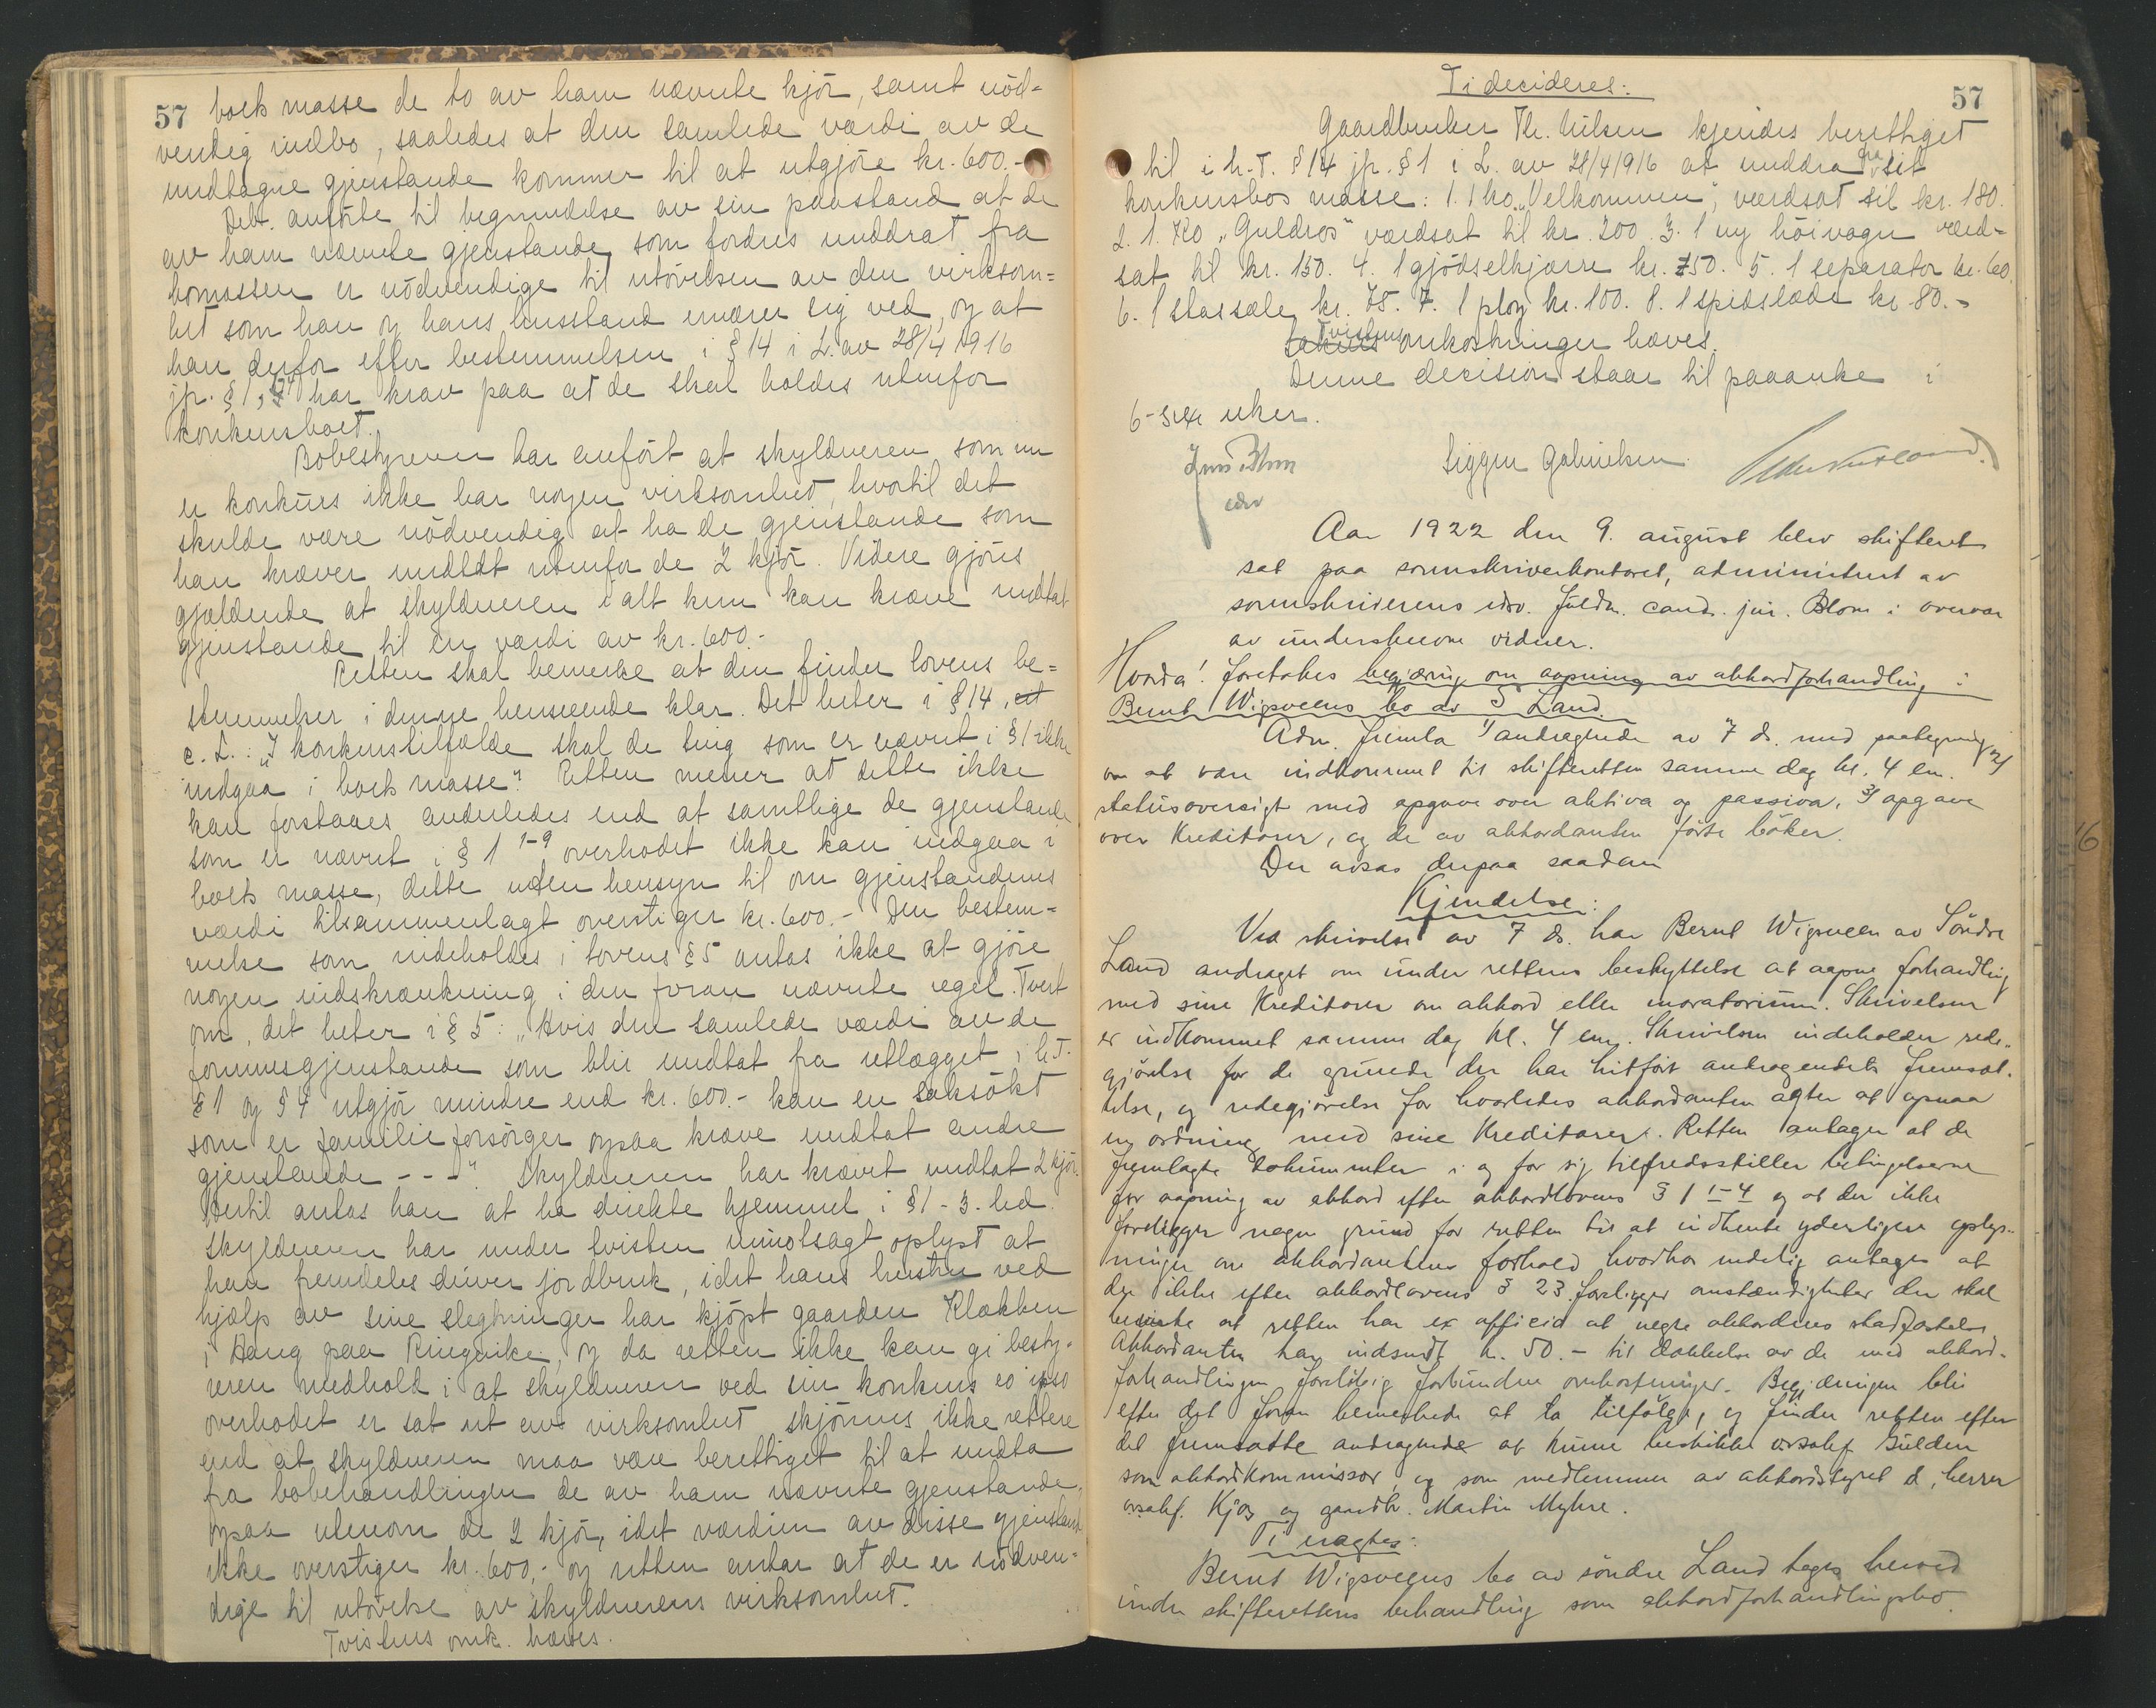 57
boets masse de to av ham nævnte kjör, samt nöd-
vendig indbo, saaledes at den samlede værdi av de
undtagne gjenstande kommer til at utgjöre kr. 600.-
Deb. anförte til begrundelse av sin paastand at de
av ham nævnte gjenstande som fordres unddrat fra
bomassen er nödvendige til utövelsen av den virksom=
het som han og hans husstand ernærer sig ved, og at
han derfor efter bestemmelsen i § 14 i L. av 28/4 1916
jfr. § 1, har krav paa at de skal holdes utenfor
konkursboet.
Bobestyreren har anfört at skyldneren som nu
er konkurs ikke har nogen virksomhet, hvortil det
skulde være nödvendig at ha de gjenstande som
han kræver undtat utenfor de 2 kjör. Videre gjöres
gjældende at skyldneren ialt kun kan kræve undtat
gjenstande til en værdi av kr. 600.-
Retten skal bemerke at den finder lovens be=
stemmelser i denne henseende klar. Det heter i § 14,
c. L.: "I konkurstilfælde skal de ting som er nævnt i § 1 ikke
indgaa i boets masse". Retten mener at dette ikke
kan forstaaes anderledes end at samtlige de gjenstande
som er nævnt i § 1 1-9 overhodet ikke kan indgaa i
boets masse, dette uten hensyn til om gjenstandenes
værdi tilsammenlagt overstiger kr. 600.- Den bestem=
melse som indeholdes i lovens § 5 antas ikke at gjöre
nogen indskrænkning i den foran nævnte regel. Tvert
om, det heter i § 5: "Hvis den samlede værdi av de
formuesgjenstande som blir undtat fra utlægget i h.t.
§ 1 og § 4 utgjör mindre end kr. 600.- kan en saksökt
som er familieforsörger ogsaa kræve undtat andre
gjenstande - - -". Skyldneren har krævet undtat 2 kjör.
Hertil antas han at ha direkte hjemmel i § 1 - 3. led.
Skyldneren har under tvisten uimotsagt oplyst at
han fremdeles driver jordbruk, idet hans hustru ved
hjælp av sine slegtninger har kjöpt gaarden Klækken
i Haug paa Ringerike, og da retten ikke kan gi besty-
reren medhold i at skyldneren ved sin konkurs eo ipso
overhodet er sat ut av virksomhet skjönnes ikke rettere
end at skyldneren maa være berettiget til at undta
fra bobehandlingen de av ham nævnte gjenstande,
ogsaa utenom de 2 kjör, idet værdien av disse gjenstande
ikke overstiger kr. 600,- og retten antar at de er nödven=
dige til utövelse av skyldnerens virksomhet.
Tvistens omk. hæves.
57
Ti decideres:
Gaardbruker Th. Nilsen kjendes berettiget
til i h.t. § 14 jfr. § 1 i L. av 28/4 1916 at unddra fra sit
konkursbos masse: 1. 1 ko "Velkommen", værdsat til kr. 180.
2. 1. Ko "Guldros" værdsat til kr. 200. 3. 1 ny höivogn værd=
sat til kr. 150. 4. 1 gjödselkjærre kr. 50. 5. 1 separator kr. 60.
6. 1 stassæle kr. 75. 7. 1 plog kr. 100. 8. 1 spidslæde kr. 80.-
Tvistens omkostninger hæves.
Denne decision staar til paaanke i
6-sex uker.
Jens Blom
edsv
Sigger Gabrielsen
Aar 1922 den 9. august blev skifteret
sat paa sorenskriverkontoret, administrert av
sorenskriverens edsv. fuldm. cand. jur. Blom i overvær
av underskrevne vidner.
Hvorda! foretokes begjæring om aapning av akkordforhandling i
Bernt Wigsveens bo av S. Land.
Adm. fremla 1) andragende av 7 ds. med paategning
om at være indkommet til skifteretten samme dag kl. 4 em. 2)
statusoversigt med opgave over aktiva og passiva, 3) opgave
over Kreditorer, og de av akkordanten förte böker.
Der avsas derpaa saadan
Kjendelse:
Ved skrivelse av 7 ds. har Bernt Wigsveen av Söndre
Land andraget om under rettens beskyttelse at aapne forhandling
med sine Kreditorer om akkord eller moratorium. Skrivelsen
er indkommet samme dag kl. 4 em. Skrivelsen indeholder rede-
gjörelse for de grunde der har hitfört andragendets fremsæt-
telse, og redegjörelse for hvorledes akkordanten agter at opnaa
en ordning med sine Kreditorer. Retten antager at de
fremlagte dokumenter i og for sig tilfredsstiller betingelserne
for aapning av akkord efter akkordlovens § 1 1-4 og at der ikke
foreligger nogen grund for retten til at indhente yderligere oplys-
ninger om akkordantens forhold hvorhos endelig antages at
der ikke efter akkordlovens § 23 foreligger omstændigheter der skal
bevirke at retten har ex officio at negte akkordens stadfæstelse
Akkordanten har indsendt kr. 50.- til dækkelse av de med akkord-
forhandlingen foreløbig forbundne omkostninger. Begjæringen blir
efter det foran bemerkede at ta tilfölge, og finder retten efter
det fremsatte andragende at kunne beskikke orsakf. Gulden
som akkordkommissær, og som medlemmer av akkordstyret d'herrer
orsakf. Kjos og gaardbr. Martin Myhre.
Ti eragtes:
Bernt Wigsveens bo av söndre Land tages herved
under skifterettens behandling som akkordforhandlingsbo.
16